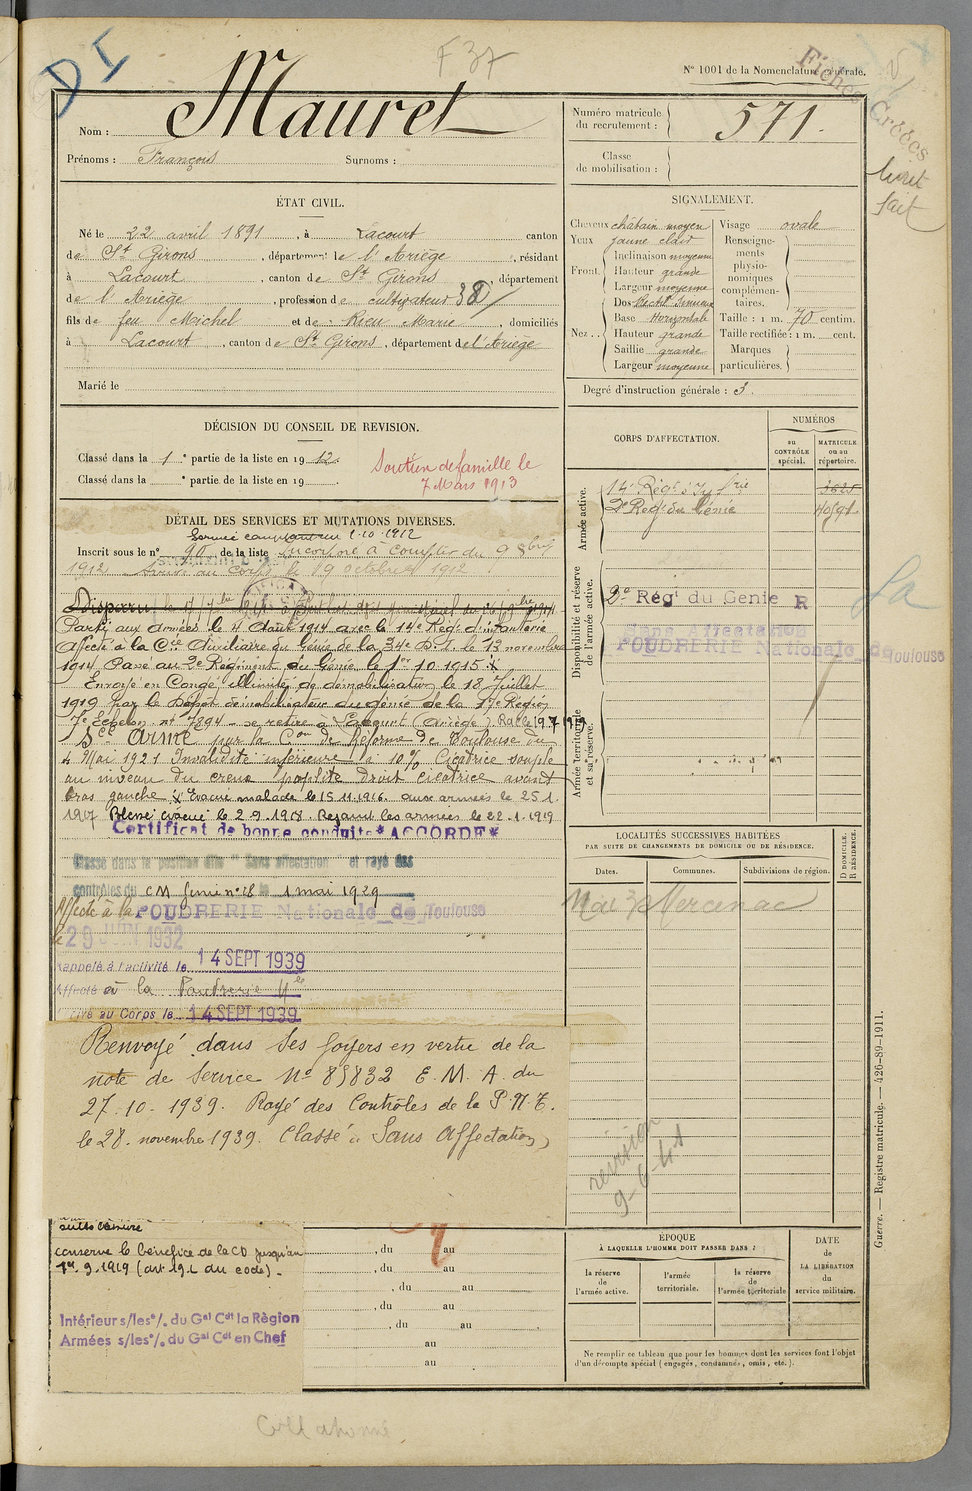 DI
F 37
N° 1001 de la Nomenclature générale.
Fiches Créées
livret
fait
Nom : Mauret
Prénoms : François Surnoms :
Numéro matricule du recrutement : 571.
Classe de mobilisation :
ÉTAT CIVIL.
Né le 22 avril 1891, à Lacourt canton
de St Girons, département de l'Ariège, résidant
à Lacourt, canton de St Girons, département
de l'Ariège, profession de cultivateur 38
fils de feu Michel et de Rieu Marie, domiciliés
à Lacourt, canton de St Girons, département de l'Ariège
Marié le
SIGNALEMENT.
Cheveux châtain moyen
Yeux jaune clair
Front.
Inclinaison moyenne
Hauteur grande
Largeur moyenne
Nez..
Dos Rectil. Sinueux
Base Horizontale
Hauteur grande
Saillie grande
Largeur moyenne
Visage ovale
Renseignements physionomiques complémentaires.
Taille : 1 m. 70 centim.
Taille rectifiée : 1 m. cent.
Marques particulières.
Degré d'instruction générale : 3.
DÉCISION DU CONSEIL DE REVISION.
Classé dans la 1e partie de la liste en 1912.
Classé dans la e partie de la liste en 19
Soutien de famille le
7 Mars 1913
CORPS D'AFFECTATION.
NUMÉROS
au CONTRÔLE spécial.
MATRICULE ou au répertoire.
Armée active.
14e Régt d'Infrie 3625
2e Régt du Génie
Disponibilité et réserve de l'armée active.
2e Régt du Genie R
Sans Affectation
POUDRERIE Nationale de Toulouse
Sa
Armée territoriale et sa réserve.
DÉTAIL DES SERVICES ET MUTATIONS DIVERSES.
1-10-1912
Inscrit sous le n° 90 de la liste Incorporé à compter du 9 8bre
1912 Arrivé au corps le 9 octobre 1912.
Disparu
Parti aux armées le 4 Août 1914 avec le 14e Régt d'infanterie
Affecté à la Cie Auxiliaire du Génie de la 34e D.I. le 13 novembre
1914 Passé au 2e Régiment du Génie le 1er 10 1915 X
Envoyé en Congé illimité de démobilisation le 18 Juillet
1919 par le Dépôt démobilisateur du génie de la 17e Région
7e Echelon n° 7894 se retire à Lacourt (Ariège). Rat le 19.7.1919
Sce armé par la Con de Réforme de Toulouse du
4 Mai 1921 Invalidité inférieure à 10% Cicatrice souple
au niveau du creux poplité droit cicatrice avant
bras gauche X Evacué malade le 15.11.1916. aux armées le 25.1.
1917 Blessé évacué le 2.9.1918. Rejoint les armées le 22.1.1919
Certificat de bonne conduite "ACCORDÉ"
Classé dans la position dite "Sans affectation" et rayé des
contrôles du CM Génie n° 18 le 1 mai 1929
Affecté à la POUDRERIE Nationale de Toulouse
le 29 JUIN 1932
Rappelé à l'activité le 14 SEPT 1939
Affecté à la Poudrerie Nle
Arrivé au Corps le 14 SEPT 1939
Renvoyé dans ses foyers en vertu de la
note de Service N° 85832 E.M.A. du
27.10.1939. Rayé des Contrôles de la P.N.T.
le 28. novembre 1939. Classé "Sans Affectation"
conserve le bénéfice de la CD jusqu'au
1er.9.1919 (art 19.L du code).
Intérieur s/les°/. du Gal Cdt la Règion
Armées s/les°/. du Gal Cdt en Chef
, du au
, du au
, du au
, du au
, du au
au
au
LOCALITÉS SUCCESSIVES HABITÉES
PAR SUITE DE CHANGEMENTS DE DOMICILE OU DE RÉSIDENCE.
Dates. Communes. Subdivisions de région.
D DOMICILE.
R RÉSIDENCE.
Mercenac
révision
9-6-41
ÉPOQUE
À LAQUELLE L'HOMME DOIT PASSER DANS :
la réserve de l'armée active.
l'armée territoriale.
la réserve de l'armée territoriale
DATE de LA LIBÉRATION du service militaire.
Ne remplir ce tableau que pour les hommes dont les services font l'objet
d'un décompte spécial (engagés, condamnés, omis, etc.).
Guerre. — Registre matricule. — 426-89-1911.